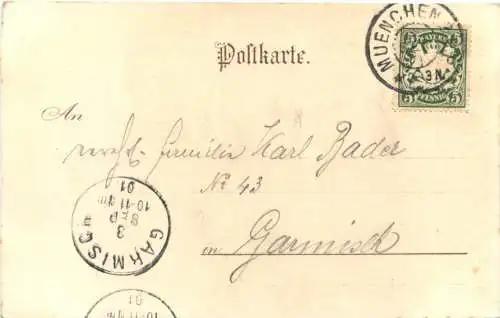 MUENCHEN
3 N
BAYERN
5 5
5 PFENNIG 5
Postkarte.
An
Familie Karl Bader
No 43
in Garmisch
GARMISCH
3
SEP
10-11
01
10-11
01